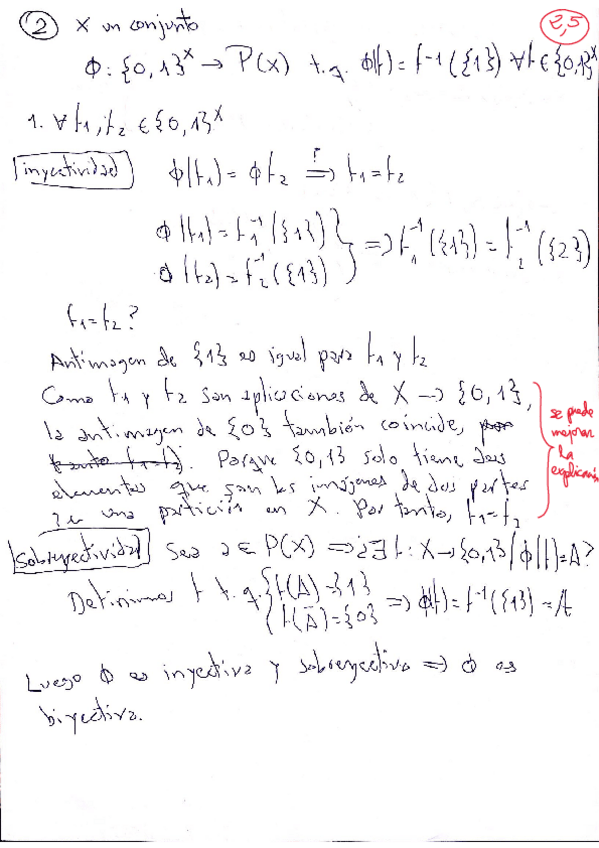 2 X un conjunto
2,5
Φ: {0,1}^X → P(X) t.q. Φ(f) = f⁻¹({1}) ∀f ∈ {0,1}^X
1. ∀ f₁, f₂ ∈ {0,1}^X
inyectividad Φ(f₁) = Φ f₂ ⟹? f₁ = f₂
Φ(f₁) = f₁⁻¹({1}) } ⟹ f₁⁻¹({1}) = f₂⁻¹({2})
Φ(f₂) = f₂⁻¹({1})
f₁ = f₂?
Antimagen de {1} es igual para f₁ y f₂
Como f₁ y f₂ son aplicaciones de X → {0,1},
la antimagen de {0} también coincide, por
tanto f₁=f₂. Porque {0,1} solo tiene dos
elementos que son las imágenes de dos partes
de una partición en X. Por tanto, f₁ = f₂
se puede
mejorar
la
explicación
Sobreyectividad Sea a ∈ P(X) ⟹ ¿∃ f: X → {0,1} / Φ(f) = A?
Definimos f t.q. { f(A) = {1}
f(Ā) = {0} ⟹ Φ(f) = f⁻¹({1}) = A
Luego Φ es inyectiva y sobreyectiva ⟹ Φ es
biyectiva.